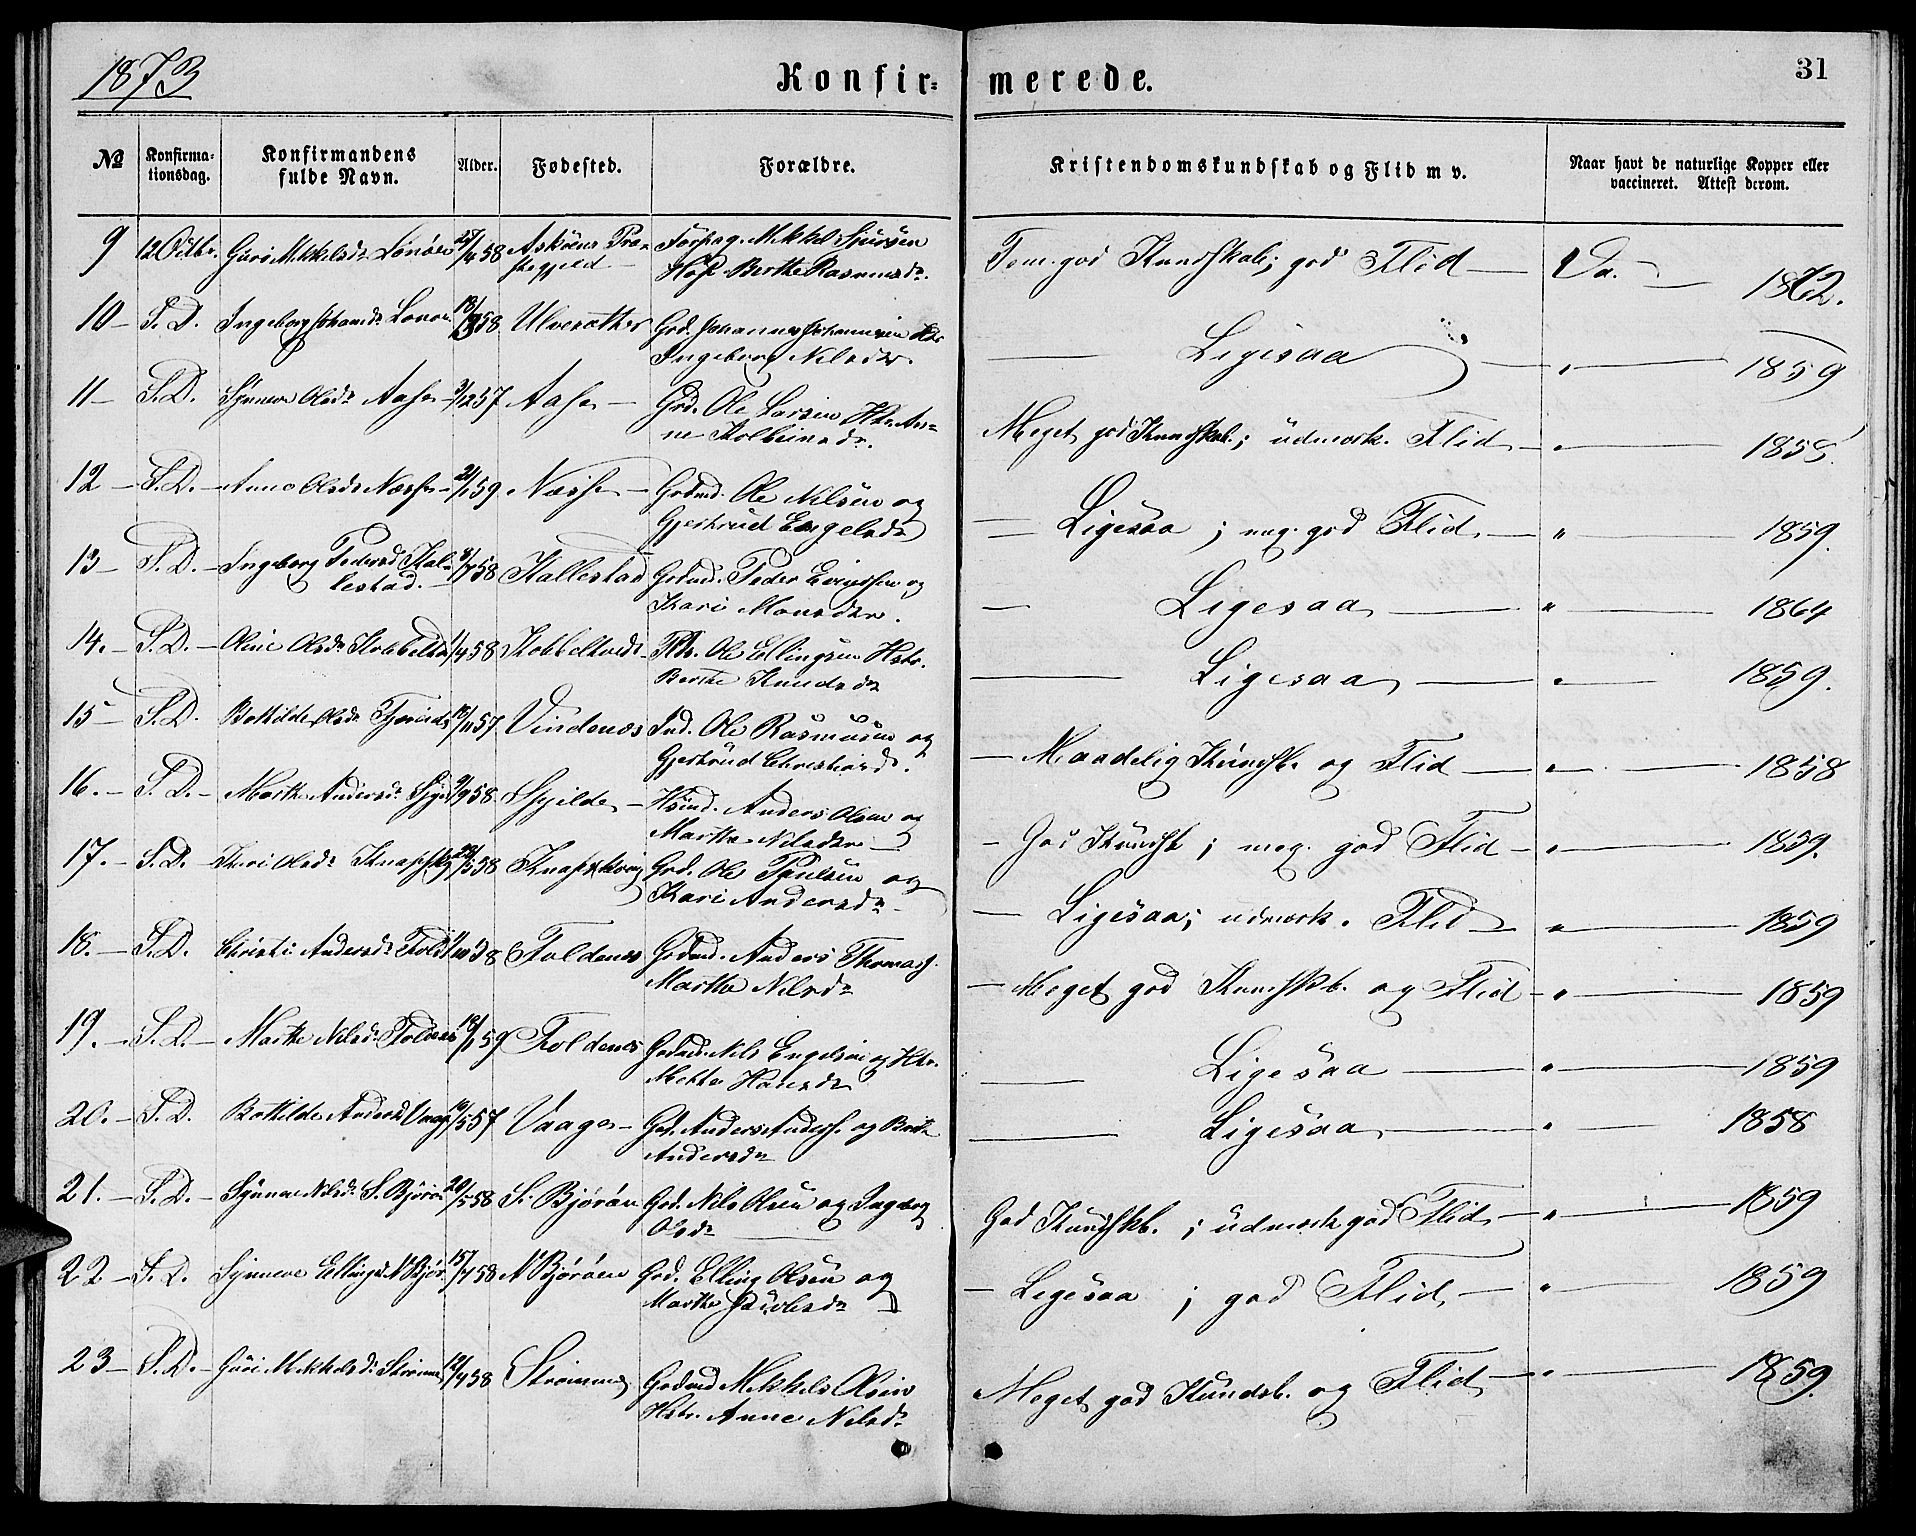 1873
Konfir-
merede.
31
No
Konfirma-
tionsdag.
Konfirmandens
fulde Navn.
Alder.
Fødested.
Forældre.
Kristendomskundskab og Flid m v.
Naar havt de naturlige Kopper eller
vaccineret. Attest derom.
9 12 Octbr. Guri Mikkelsd. 25/4 58 Askøens Præ-
stegjeld
Mikkel Sjursen
Berthe Rasmusd.
Tem. god Kundskab; god Flid — Va. — 1862.
10 — S. D. Ingeborg Johannesd. 58
Grd. Johannes Johannesen
Ingeborg Nilsdr.
— Ligesaa — " — 1859
11 — S. D. Synneve Olsdr Aase 3/12 57 Aase —
Grd. Ole Larsen Hstr. An-
ne
Meget god Kundskb.; udmærk. Flid — " — 1858.
12 — S. D. — Anna Olsdr Næsse — 21/1 59 Næsse —
Grdmd. Ole Nilsen og
Gjertrud Engelsdr
— Ligesaa; meg. god Flid — " — 1859.
13 — S. D. — Ingeborg Pedersd Kal-
lestad. — 8/7 58 Kallestad
Grdmd. Peder og
Kari Monsdr.
— Ligesaa — " — 1864
14. — S. D. — Oline Olsdr 1/4 58
Ole Ellingsen Hstr.
Berthe Knudsdr
— Ligesaa — " — 1859.
15 — S. D. Bothilde Olsdr 57 Vindenæs
Ind. Ole Rasmusen og
Gjertrud
— Maadelig Kundsk. og Flid — " — 1858
16. — S. D. — Marthe Andersdr 9/9 58
Husmd. Anders Olsen og
Marthe Nilsdr
— God Kundsk; meg. god Flid — " — 1859.
17. — S. D. — Olsdr 58
Grd. Ole Paulsen og
Kari Andersdr
— Ligesaa; udmærk. Flid — " — 1859
18. — S. D. Christi Andersdr 1/10 58 Toldenæs
Grdmd. Anders Thomas.
Marthe Nilsdr
— Meget god Kundskb. og Flid — " — 1859
19. — S. D. — Marthe Nilsdr 18/1 59 Toldenæs
Grdmd. Nils Engelsen og Hstr.
Mette Hansdr
— Ligesaa — " — 1859
20. — S. D. Bothilde Andersd Vaage 16/5 57 Vaage —
Grd. Anders Anders. og Brite
Andersdr
— Ligesaa — " — 1858
21. — S. D. — Synneve Nilsd. S. Bjørøen 20/5 58 S. Bjørøen
Grd. Nils Olsen og Ingeborg
Olsdr
God Kundskb.; udmærk god Flid — " — 1859
22 — S. D. Synneve Ellingsd. N Bjør. 15/7 58 N Bjørøen
Grd. Elling Olsen og
Marthe Jacobsdr
— Ligesaa; god Flid — " — 1859
23 — S. D. — Guri Mikkelsd. Strømme 12/7 58 Strømme
Grdmd Mikkel Olsen
Hstr. Anne Nilsdr
Meget god Kundsk. og Flid — " — 1859.